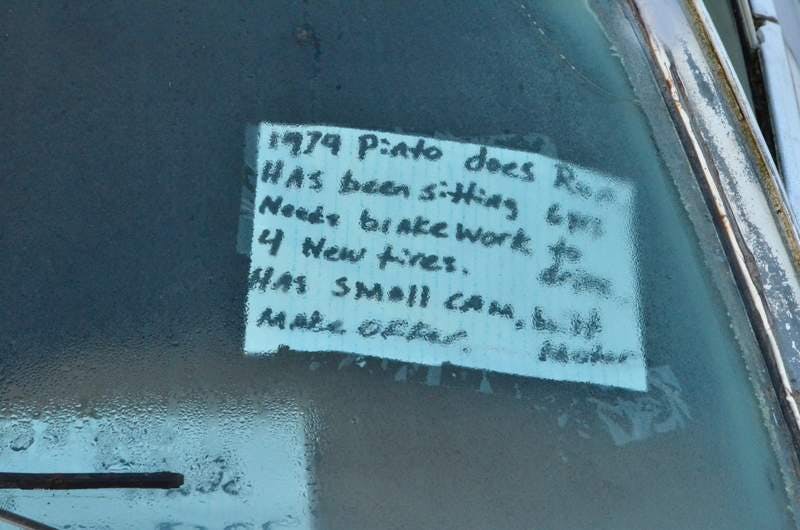 1979 Pinto does Run
HAS been sitting 6 yrs
Needs brake work to
drive
4 New tires.
HAS small cam, built
Motor
Make offer.